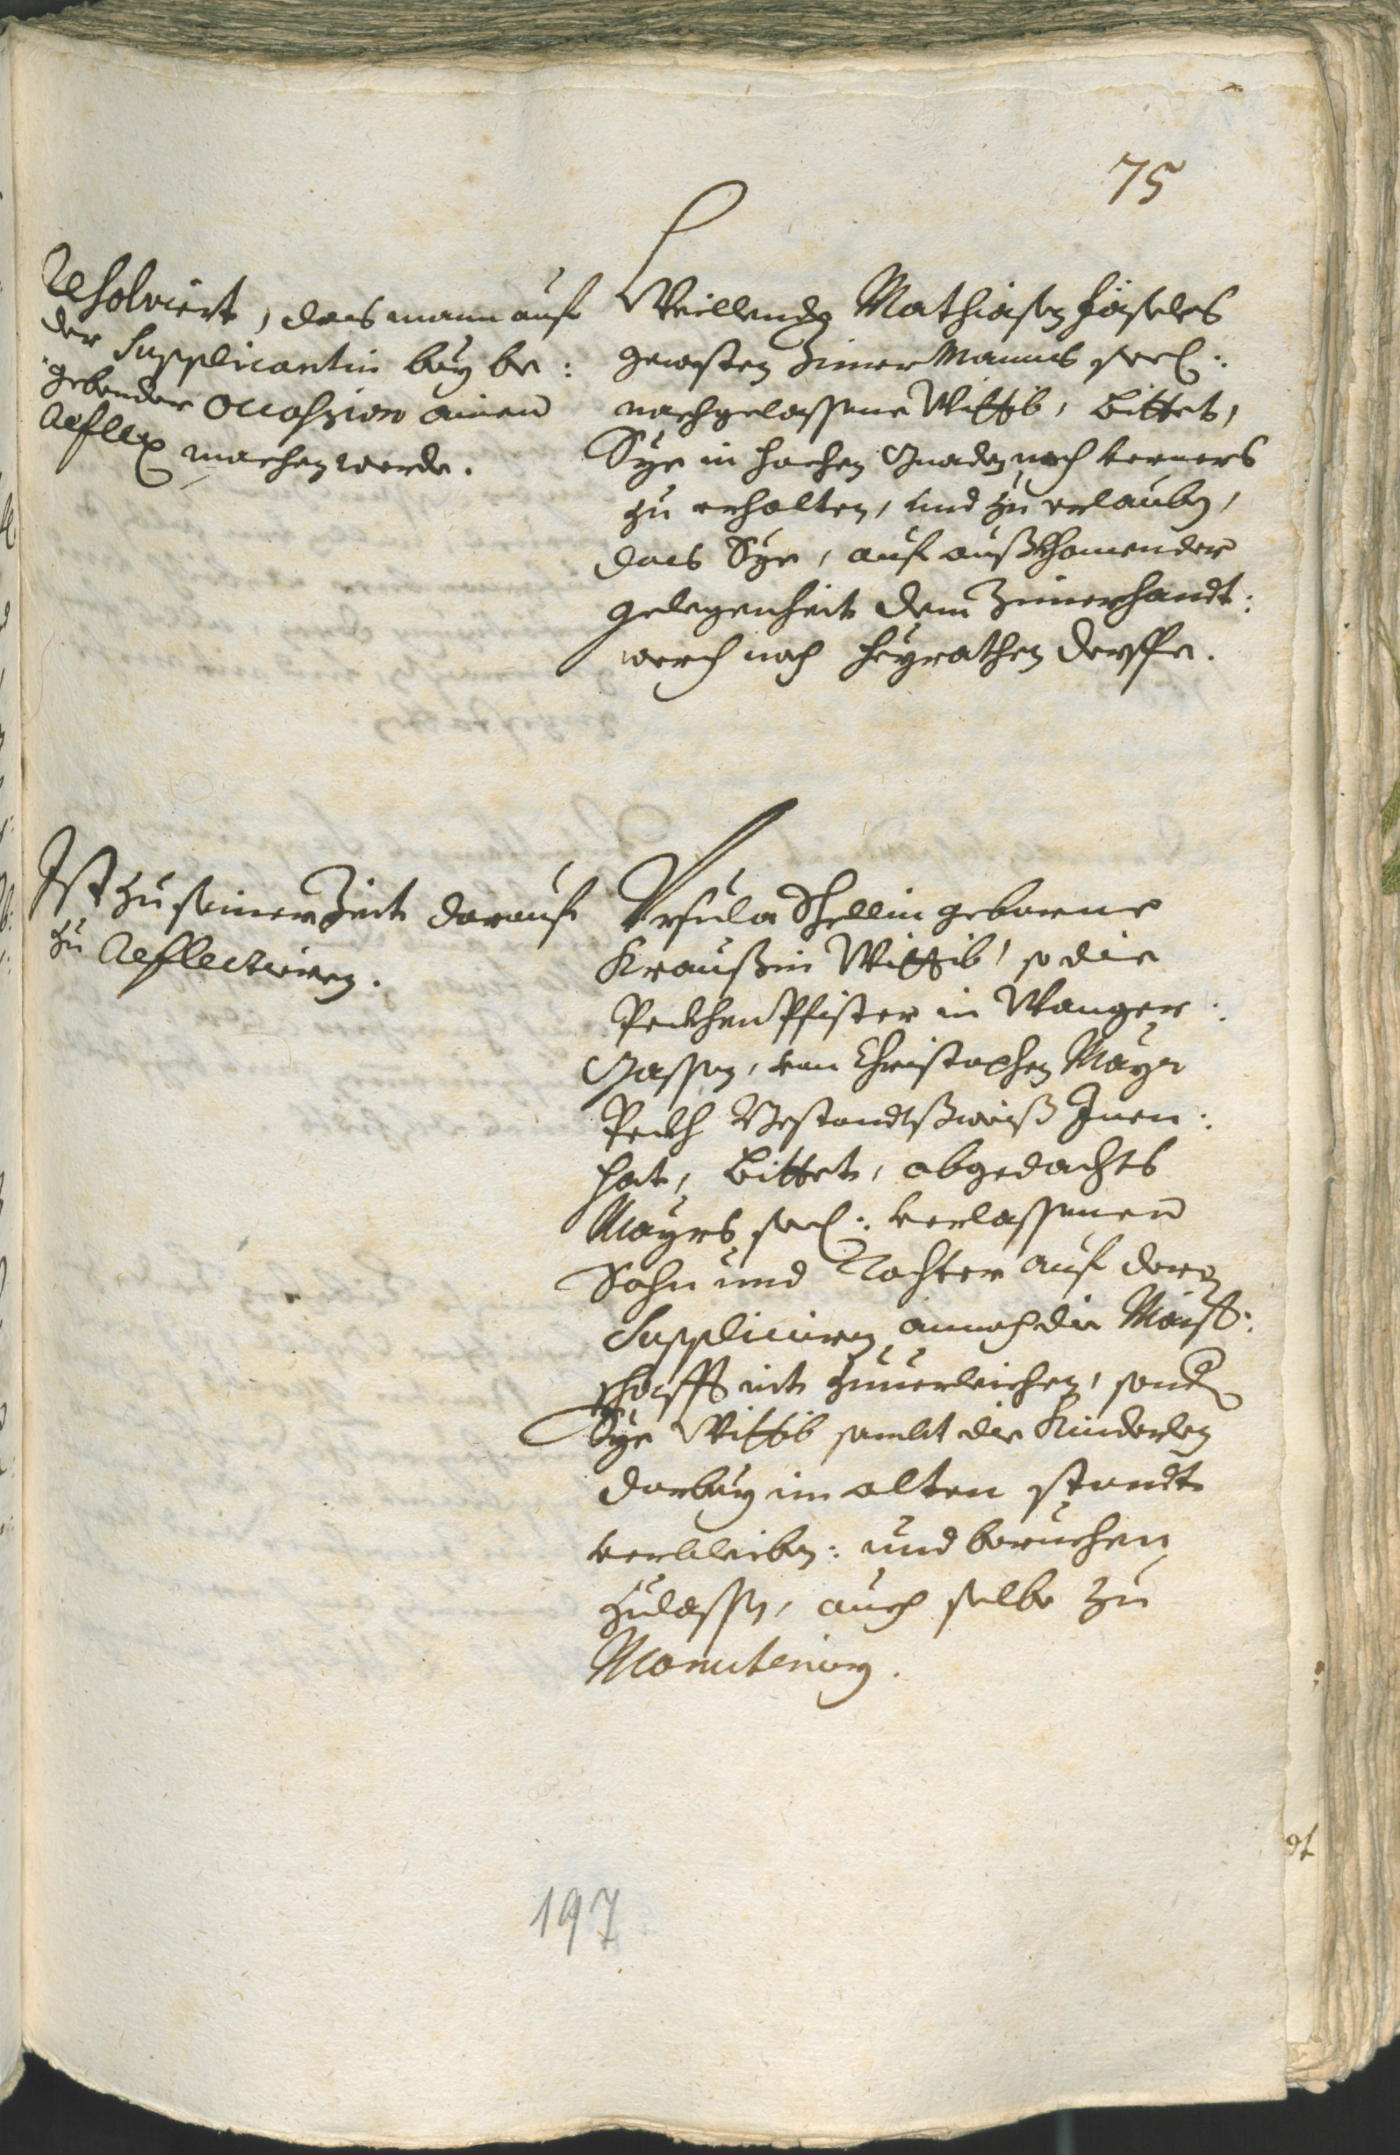 75
Resolviert, das mann auf
der Supplicantin beÿ be:
gebender occahsion ainen
Reflex machen werde.
Weillendt Mathiasen
gewesten Zimer Manns seel:
nachgelassene Wittib, bittet,
Sÿe in hochen Gnaden noch ferners
zu erhalten, und zu erlauben,
das Sÿe, auf außkhomender
gelegenheit dem Zimerhandt:
werch nach heÿrathen derffe.
Ist zu seiner Zeit darauf
zu Reflectiren.
Ursula Schellin geborne
Kraußin Wittib, so die
Peckhen Pfister in Wanger:
Gassen, von Christophen Maÿr
Peckh Bestandtßweiß Inen:
hat, bittet, obgedachts
Maÿrs seel: verlassenen
Sohn und Tochter auf deren
Suppliciren annoch die Maist:
schafft nit zuuerleichen, sondern
Sÿe Wittib sambt die Kinderlen
darbeÿ im alten standt
verbleiben: und beruehen
zulassen, auch selbe zu
Manuteniren.
197